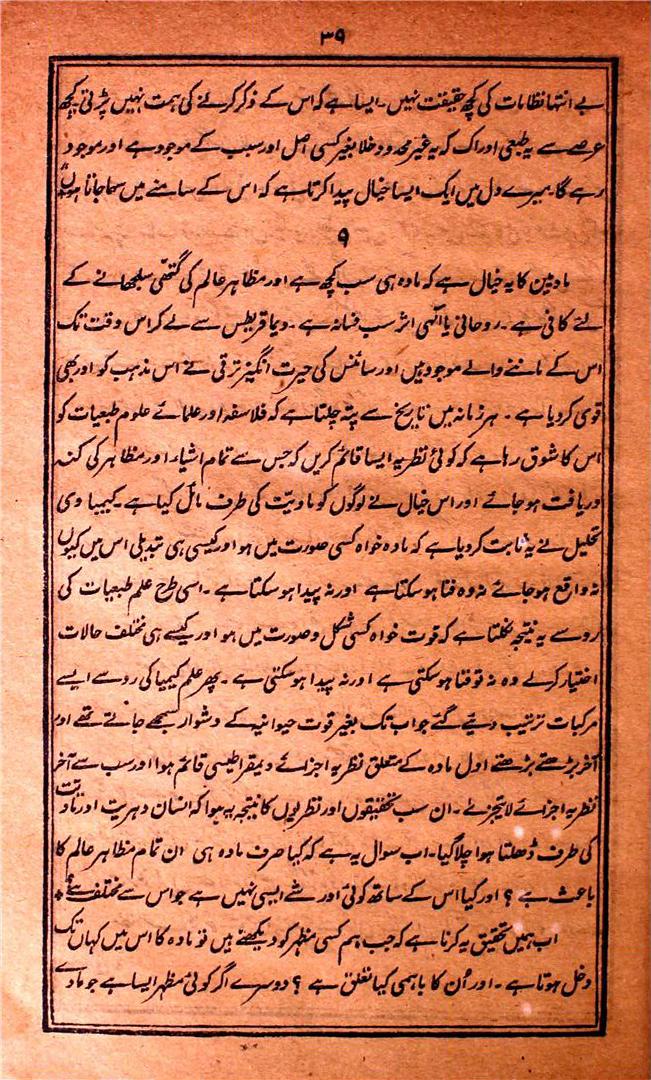 ۳۹
بے انتہا نظامات کی کچھ حقیقت نہیں۔ ایسا ہے کہ اس کے ذکر کرنے کی ہمت نہیں پڑتی۔ کچھ
عرصے سے یہ طبعی ادراک کہ یہ غیر محدود خلا بغیر کسی اصل اور سبب کے موجود ہے اور موجود
رہے گا۔ میرے دل میں ایک ایسا خیال پیدا کرتا ہے کہ اس کے سامنے میں سہما جاتا ہوں
۹
مادیین کا یہ خیال ہے کہ مادہ ہی سب کچھ ہے اور مظاہر عالم کی گتھی سلجھانے کے
لئے کافی ہے۔ روحانی یا الٰہی اثر سب فسانہ ہے۔ دیماقریطس سے لے کر اس وقت تک
اس کے ماننے والے موجود ہیں اور سائنس کی حیرت انگیز ترقی نے اس مذہب کو اور بھی
قوی کر دیا ہے۔ ہر زمانہ میں تاریخ سے پتہ چلتا ہے کہ فلاسفہ اور علمائے علوم طبعیات کو
اس کا شوق رہا ہے کہ کوئی نظریہ ایسا قائم کریں کہ جس سے تمام اشیاء اور مظاہر کی کنہ
دریافت ہو جائے اور اس خیال نے لوگوں کو مادیّت کی طرف مائل کیا ہے۔ کیمیاوی
تحلیل نے یہ ثابت کر دیا ہے کہ مادہ خواہ کسی صورت میں ہو اور کیسی ہی تبدیلی اس میں کیوں
نہ واقع ہو جائے نہ وہ فنا ہو سکتا ہے اور نہ پیدا ہو سکتا ہے۔ اسی طرح علم طبعیات کی
رو سے یہ نتیجہ نکلتا ہے کہ قوت خواہ کسی شکل و صورت میں ہو اور کیسے ہی مختلف حالات
اختیار کرلے وہ نہ تو فنا ہو سکتی ہے اور نہ پیدا ہو سکتی ہے۔ پھر علم کیمیا کی رو سے ایسے
مرکبات ترتیب دیئے گئے جو اب تک بغیر قوت حیوانیہ کے دشوار سمجھے جاتے تھے اور
آخر بڑھتے بڑھتے اول مادہ کے متعلق نظریہ اجزائے دیمقراطیسی قائم ہوا اور سب سے آخر
نظریہ اجزائے لایتجزےٰ۔ ان سب تحقیقوں اور نظریوں کا نتیجہ یہ ہوا کہ انسان دہریت اور مادیّت
کی طرف ڈھلتا ہوا چلا گیا۔ اب سوال یہ ہے کہ کیا صرف مادہ ہی ان تمام مظاہر عالم کا
باعث ہے؟ اور کیا اس کے ساتھ کوئی اور شے ایسی نہیں ہے جو اس سے مختلف ہے؟
اب ہمیں تحقیق یہ کرنا ہے کہ جب ہم کسی مظہر کو دیکھتے ہیں تو مادہ کا اس میں کہاں تک
دخل ہوتا ہے۔ اور اُن کا باہمی کیا تعلق ہے؟ دوسرے اگر کوئی مظہر ایسا ہے جو مادے